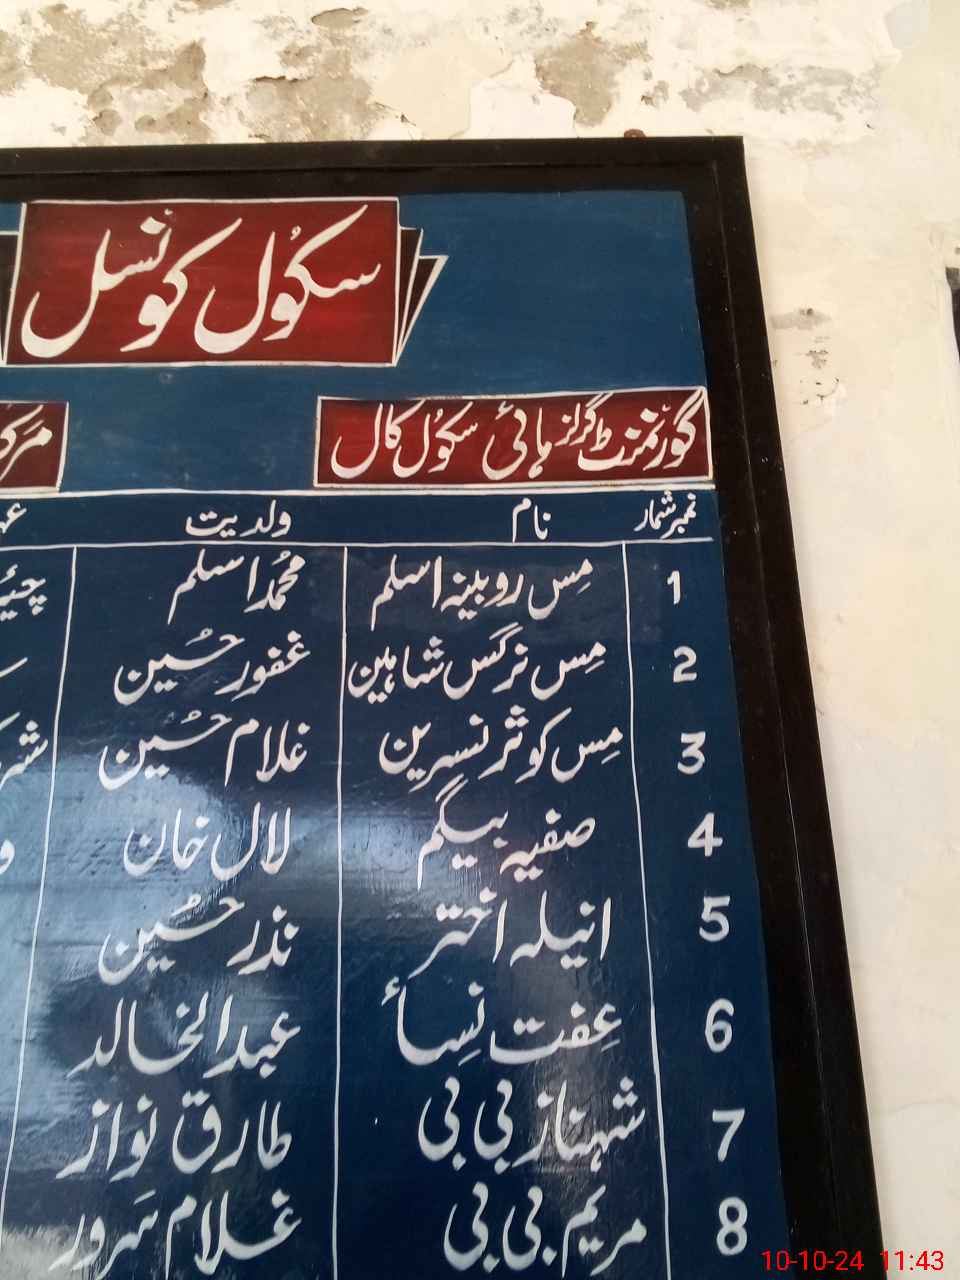 سکول کونسل
گورنمنٹ گرلز ہائی سکول کال
نمبر شمار نام ولدیت
1 مس روبینہ اسلم محمد اسلم
2 مس نرگس شاہین غفور حسین
3 مس کوثر نسرین غلام حسین
4 صفیہ بیگم لال خان
5 انیلہ اختر نذر حسین
6 عفت نساٴ عبدالخالد
7 شہناز بی بی طارق نواز
8 مریم بی بی غلام سرور
10-10-24 11:43